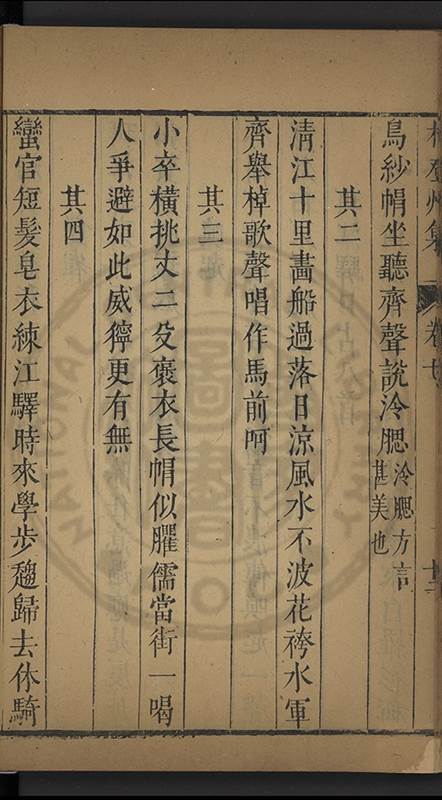 鳥紗帽坐聽齊聲說冷腮冷腮方言甚美也
其二
清江十里畵船過落日凉風水不波花袴水軍
齊舉棹歌聲唱作馬前呵
其三
小卒橫挑丈二殳褒衣長帽似臞儒當街一喝
人爭避如此威獰更有無
其四
蠻官短髮皂衣練江驛時來學步趨歸去休騎